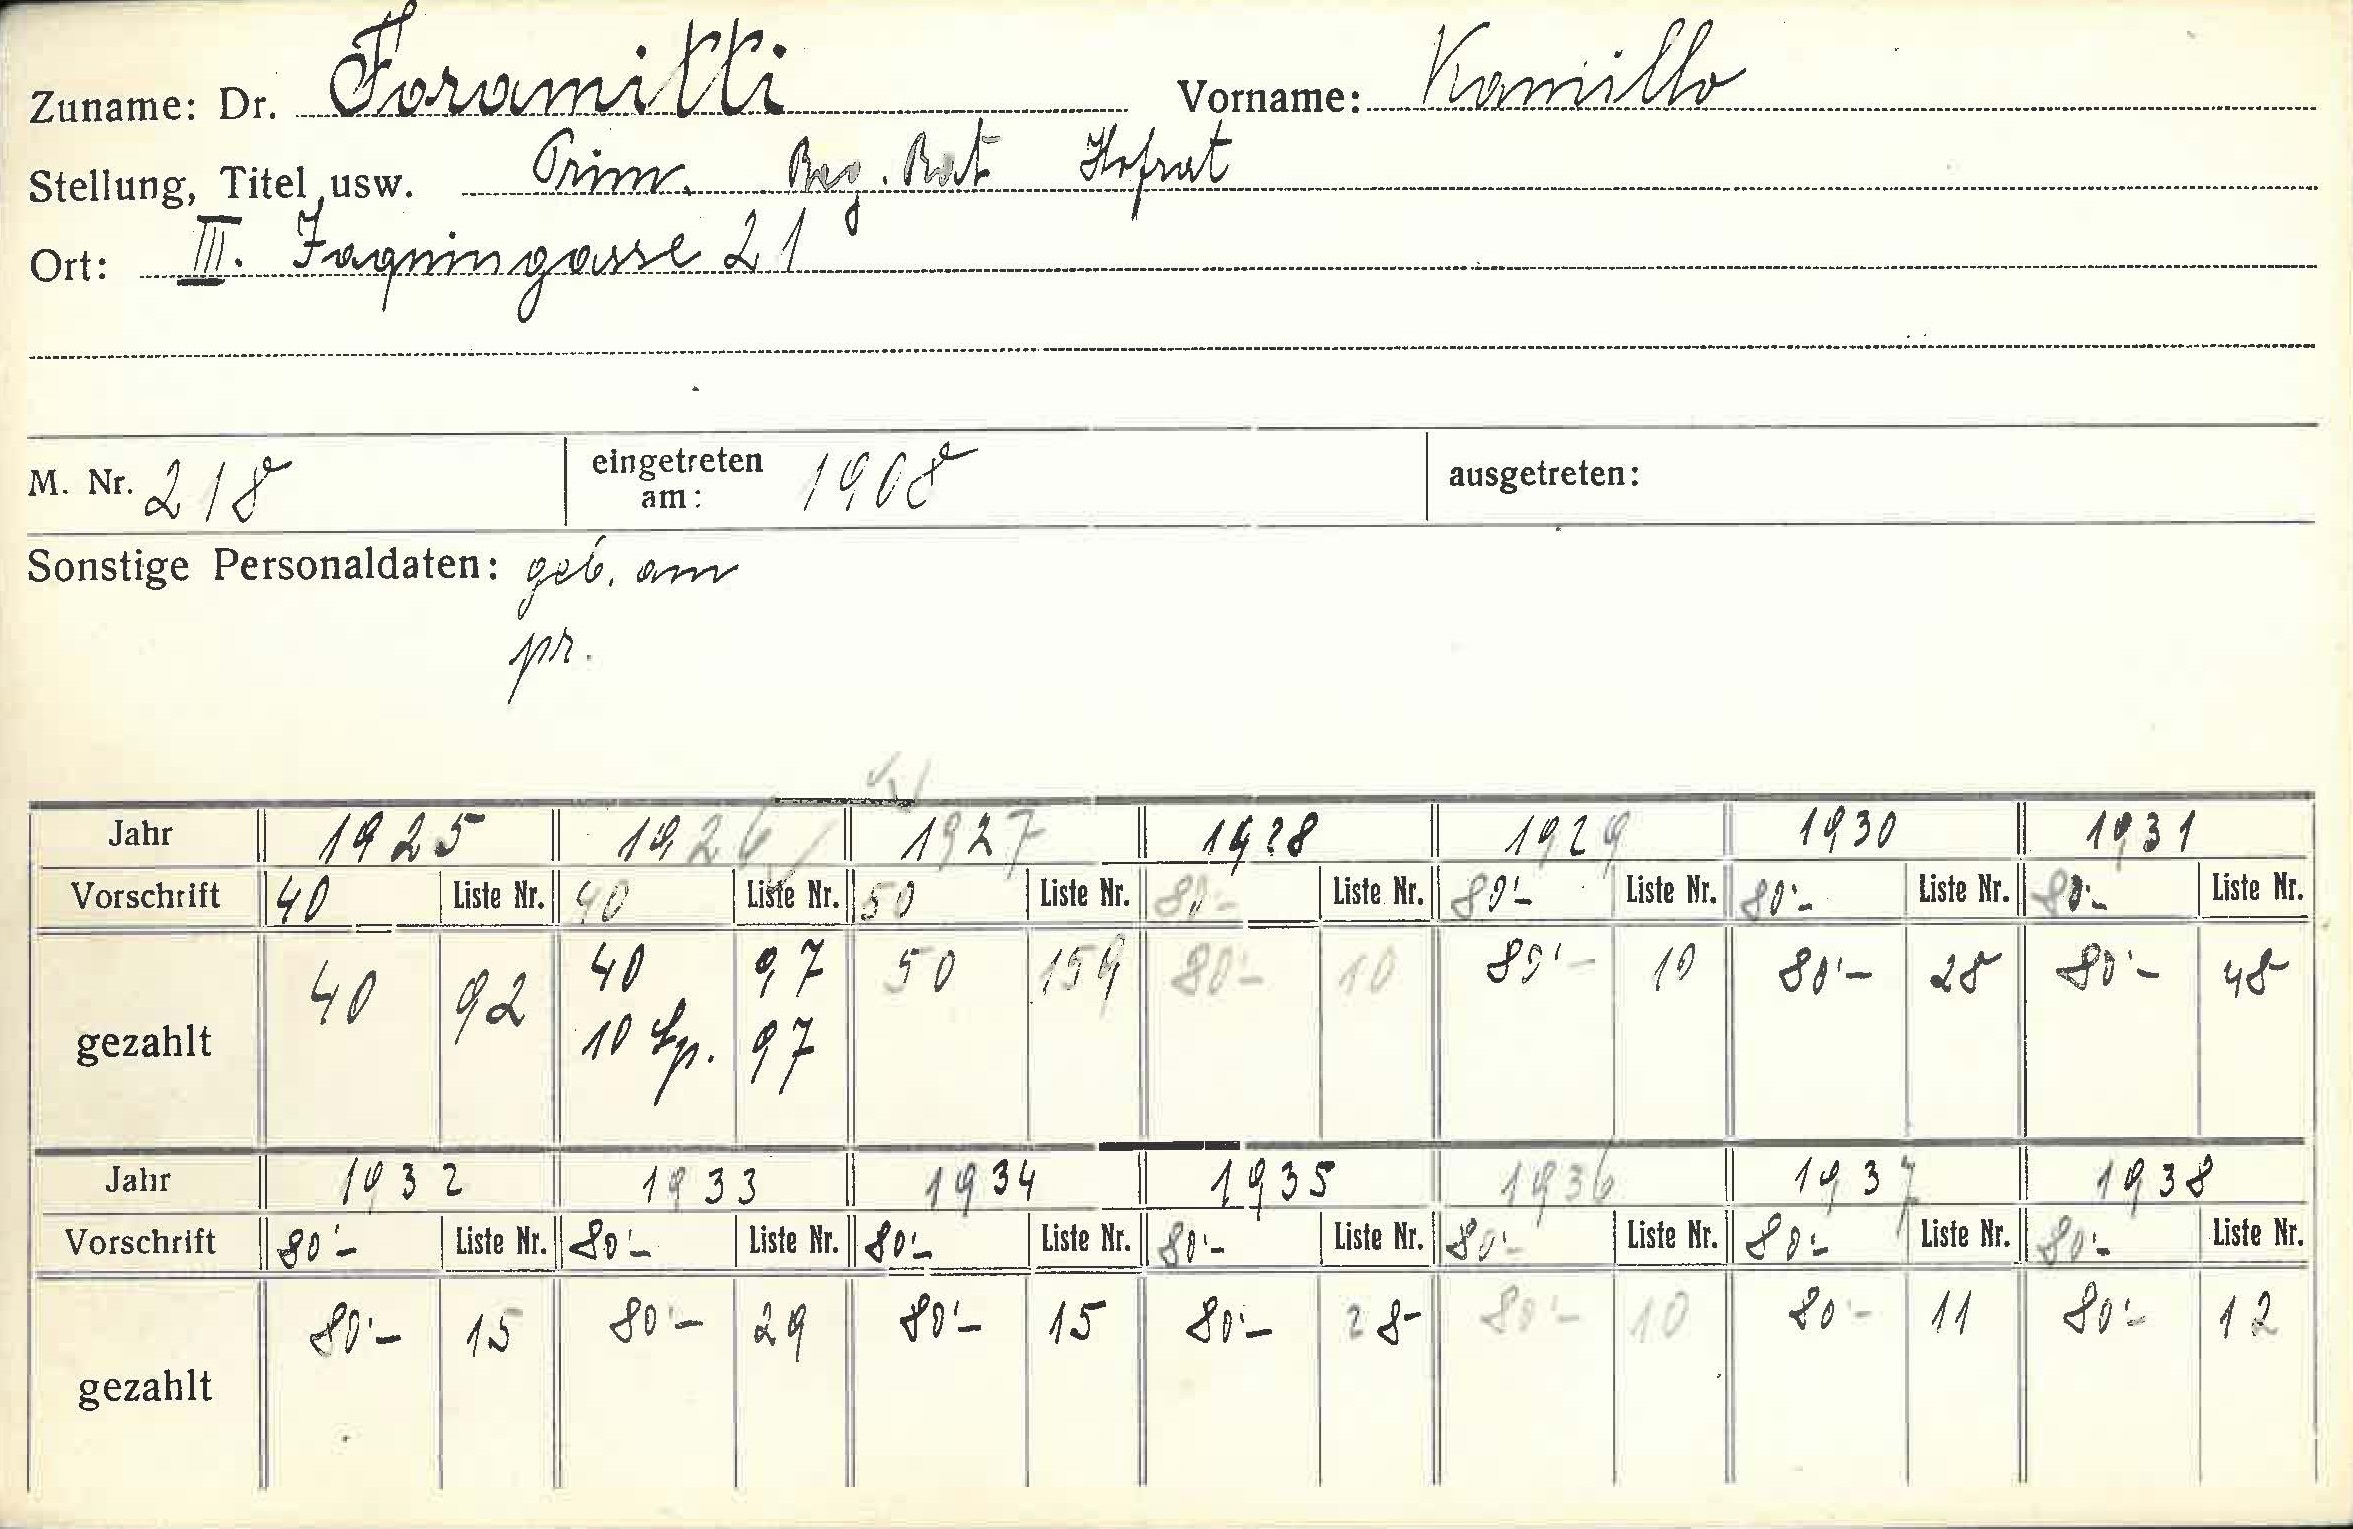 Zuname: Dr. Foramitti Vorname: Kamillo
Stellung, Titel usw. Prim. Reg. Rat Hofrat
Ort: III. Jaquingasse 21
M. Nr. 218 eingetreten am: 1908 ausgetreten:
Sonstige Personaldaten: geb. am
pr.
Jahr 1925 1926 1927 1928 1929 1930 1931
Vorschrift 40 Liste Nr. 40 Liste Nr. 50 Liste Nr. 80'- Liste Nr. 80'- Liste Nr. 80'- Liste Nr. 80'- Liste Nr.
gezahlt 40 92 40 97 50 159 80'- 10 80'- 10 80'- 28 80'- 48
10 Sp. 97
Jahr 1932 1933 1934 1935 1936 1937 1938
Vorschrift 80'- Liste Nr. 80'- Liste Nr. 80'- Liste Nr. 80'- Liste Nr. 80'- Liste Nr. 80'- Liste Nr. 80'- Liste Nr.
gezahlt 80'- 15 80'- 29 80'- 15 80'- 28 80'- 10 80'- 11 80'- 12